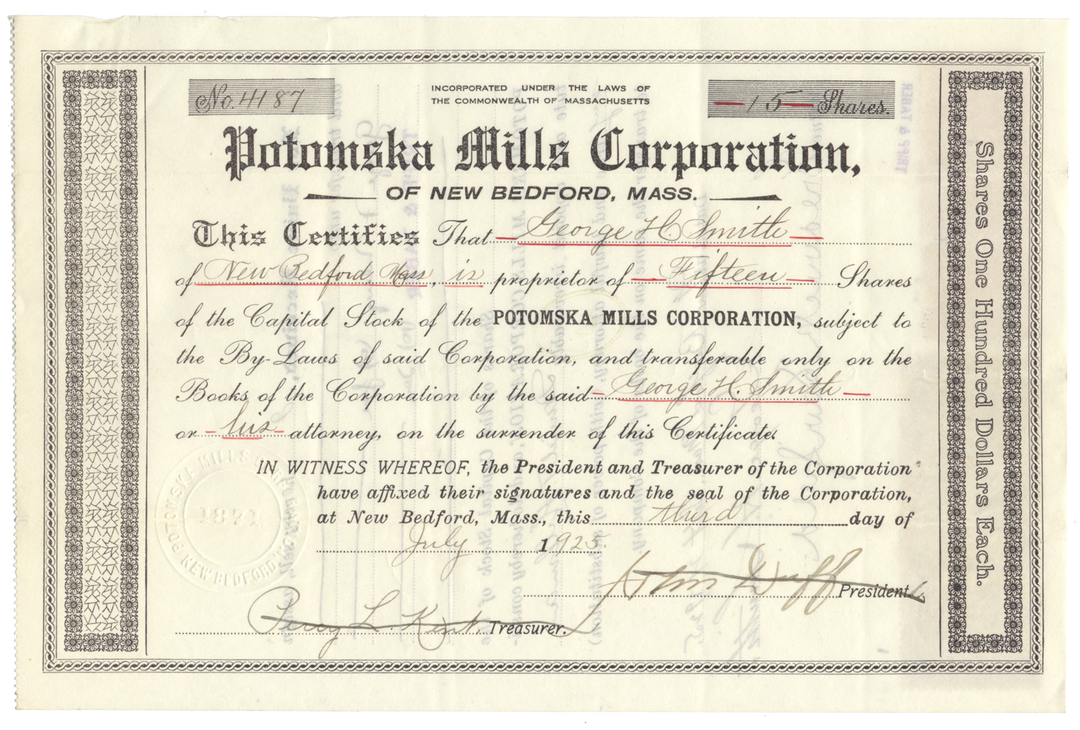 No. 4187
INCORPORATED UNDER THE LAWS OF
THE COMMONWEALTH OF MASSACHUSETTS
15 Shares.
Potomska Mills Corporation,
OF NEW BEDFORD, MASS.
This Certifies That George H Smith
of New Bedford, Mass, is proprietor of Fifteen Shares
of the Capital Stock of the POTOMSKA MILLS CORPORATION, subject to
the By-Laws of said Corporation, and transferable only on the
Books of the Corporation by the said George H. Smith
or his attorney, on the surrender of this Certificate.
IN WITNESS WHEREOF, the President and Treasurer of the Corporation
have affixed their signatures and the seal of the Corporation,
at New Bedford, Mass., this third day of
July 1925.
John Duff President
Percy L Kent. Treasurer.
Shares One Hundred Dollars Each.
POTOMSKA MILLS
1871
NEW BEDFORD
TRIPP & TABER